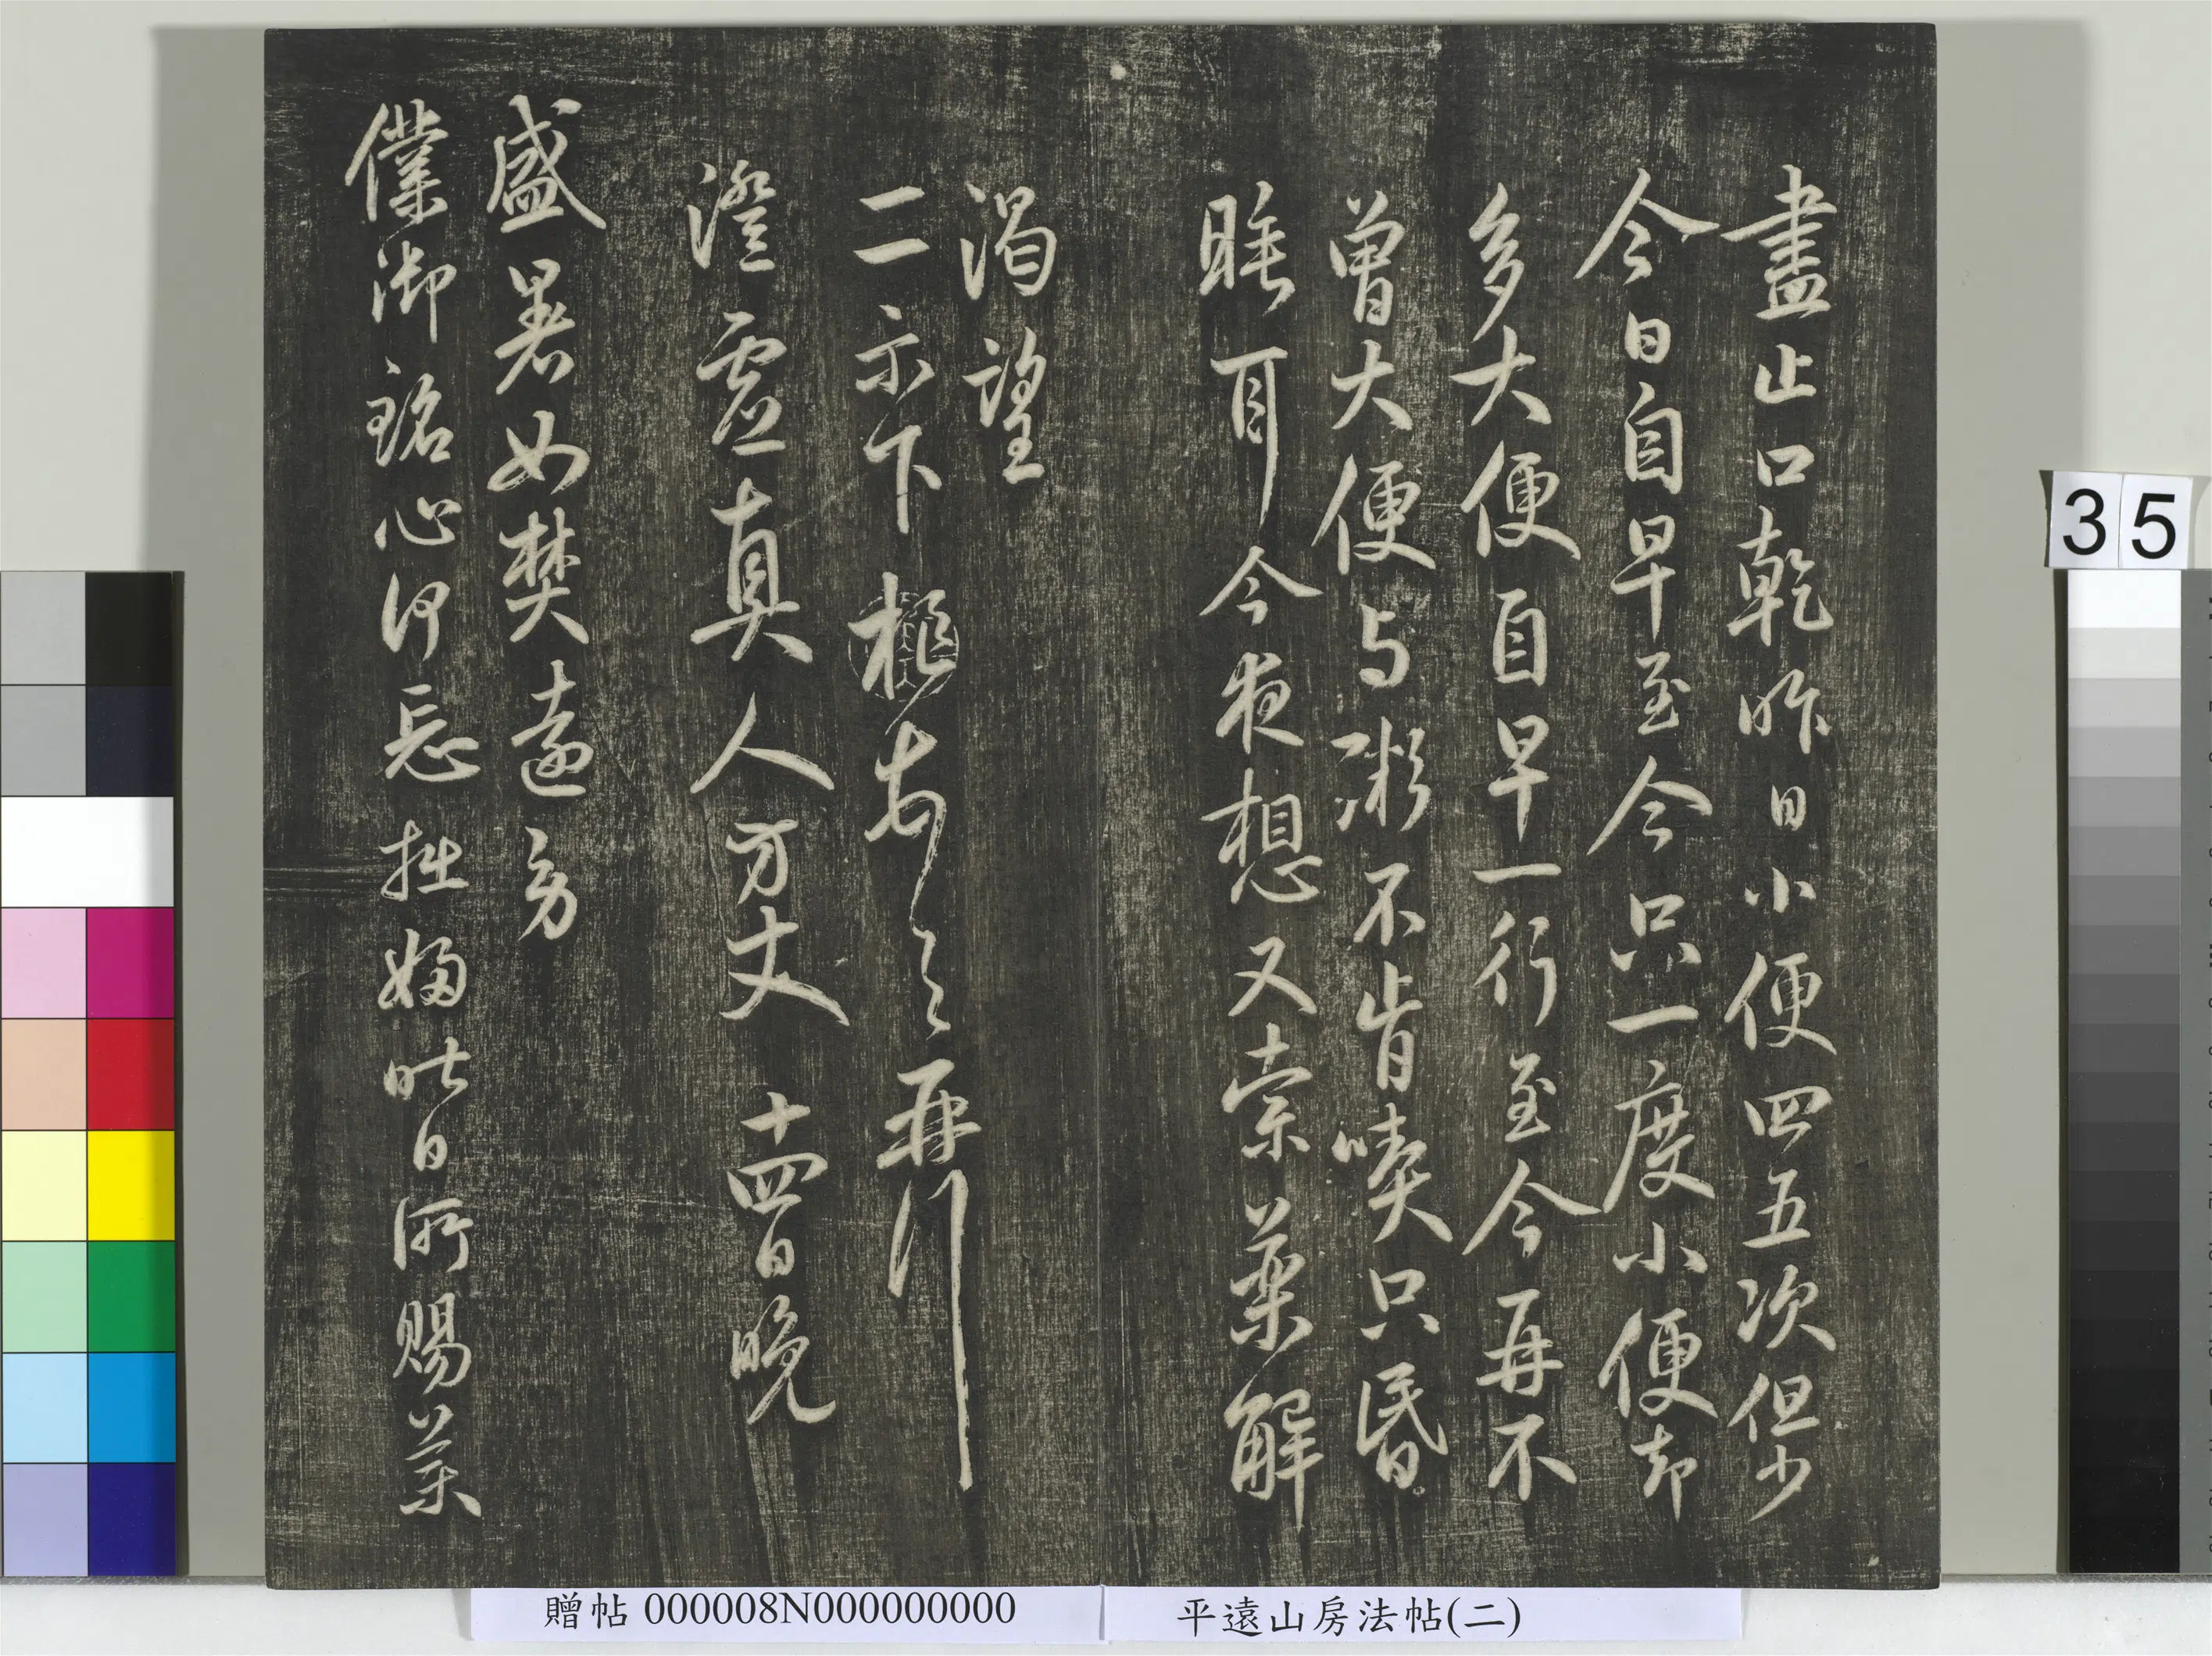 盡止口乾昨日小便四五次但少
今日自早至今只一度小便却
多大便自早一行至今再不
曾大便与粥不肯喫只昏
睡耳今夜想又索藥解
渴望
二示下極告之再行
澄虚真人方丈 十四日晚
盛暑如焚遠勞
僕御銘心何忘拙婦昨日所賜藥
35
贈帖 000008N000000000
平遠山房法帖(二)